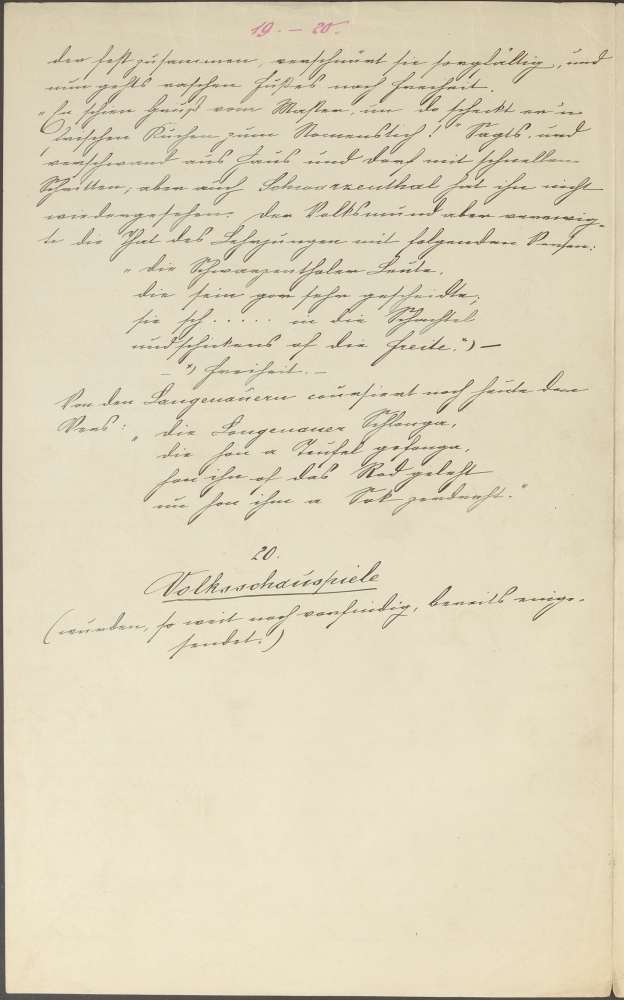 19. – 20.
der fest zusammen, verschnürt sie sorgfältig, und
nun gehts raschen Fußes nach Freiheit.
"En schien Gruß vom Master, un do scheckt er 'n
frischen Kuchen zum Nomenstich!" Sagts, und
verschwand aus Haus und Dorf mit schnellen
Schritten, aber auch Schwarzenthal hat ihn nicht
wiedergesehen. Der Volksmund aber verewig-
te die That des Lehrjungen mit folgenden Versen:
"die Schwarzenthaler Leute,
die sein gor sehr gescheidte,
sie sch..... in die Schachtel
und schickens of die Freite.")" –
– ") Freiheit. –
Von den Langenauern coursiert noch heute der
Vers: "die Langenauer Schlonga,
die hon a Teufel gefonga,
hon ihn of das Rod geleht
un hon ihm a Sok zerdreht."
20.
Volksschauspiele
(wurden, so weit noch vorfindig, bereits einge-
sendet.)